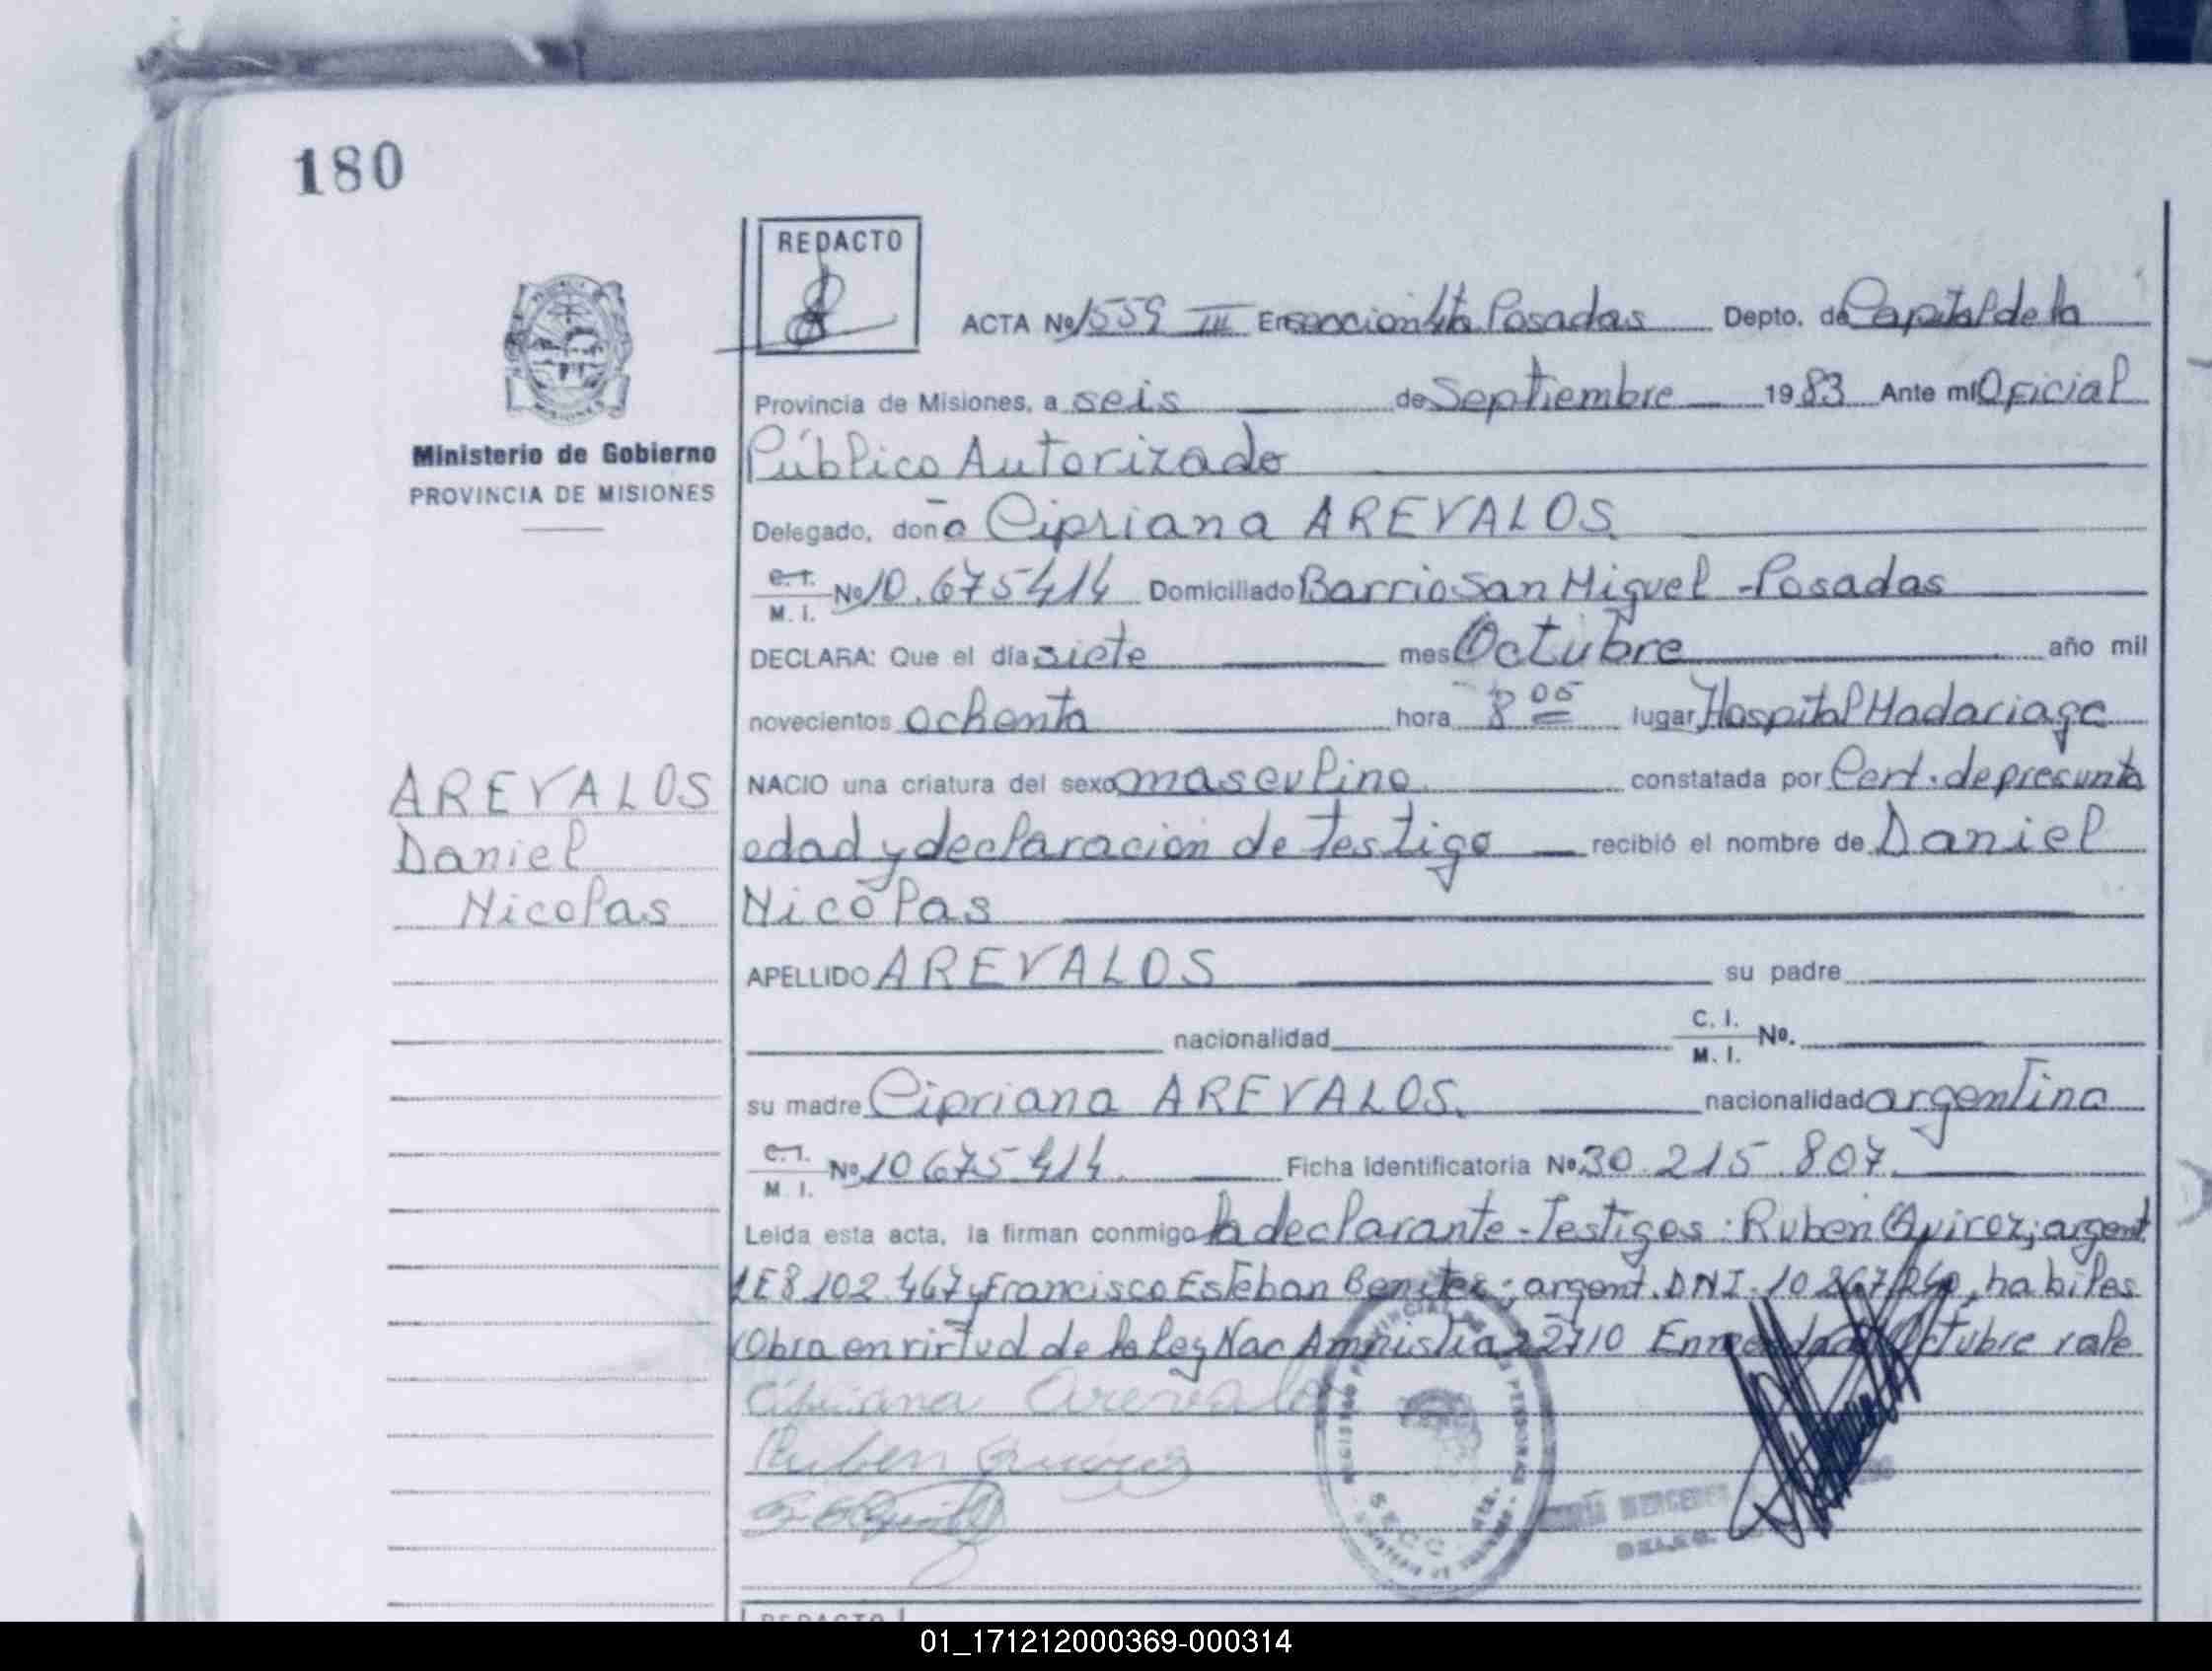 180
REDACTO
ACTA Nº 1559 III En sección 4ta Posadas Depto. de Capital de la
Provincia de Misiones, a seis de Septiembre 1983 Ante mí Oficial
Ministerio de Gobierno
PROVINCIA DE MISIONES
Público Autorizado
Delegado, doña Cipriana AREVALOS
C.I. M.I. Nº 10.675414 Domiciliado Barrio San Miguel - Posadas
DECLARA: Que el día siete mes Octubre año mil
novecientos ochenta hora 8 05 lugar Hospital Madariaga
AREVALOS
Daniel
Nicolas
NACIO una criatura del sexo masculino constatada por Cert. de presunta
edad y declaración de testigo recibió el nombre de Daniel
Nicolas
APELLIDO AREVALOS su padre
nacionalidad C.I. M.I. Nº.
su madre Cipriana AREVALOS. nacionalidad argentina
C.I. M.I. Nº 10675414. Ficha Identificatoria Nº 30.215.807.
Leída esta acta, la firman conmigo la declarante - Testigos: Ruben Quiroz; argent.
LE 8.102.467 y Francisco Esteban Benitez; argent. DNI. 10 267 habiles
Obra en virtud de la Ley Nac Amnistia 22710 Enmendado Octubre vale
Cipriana Arevalo
Ruben Quiroz
SECC.
MERCEDES
DELEG.
REDACTO
01_171212000369-000314